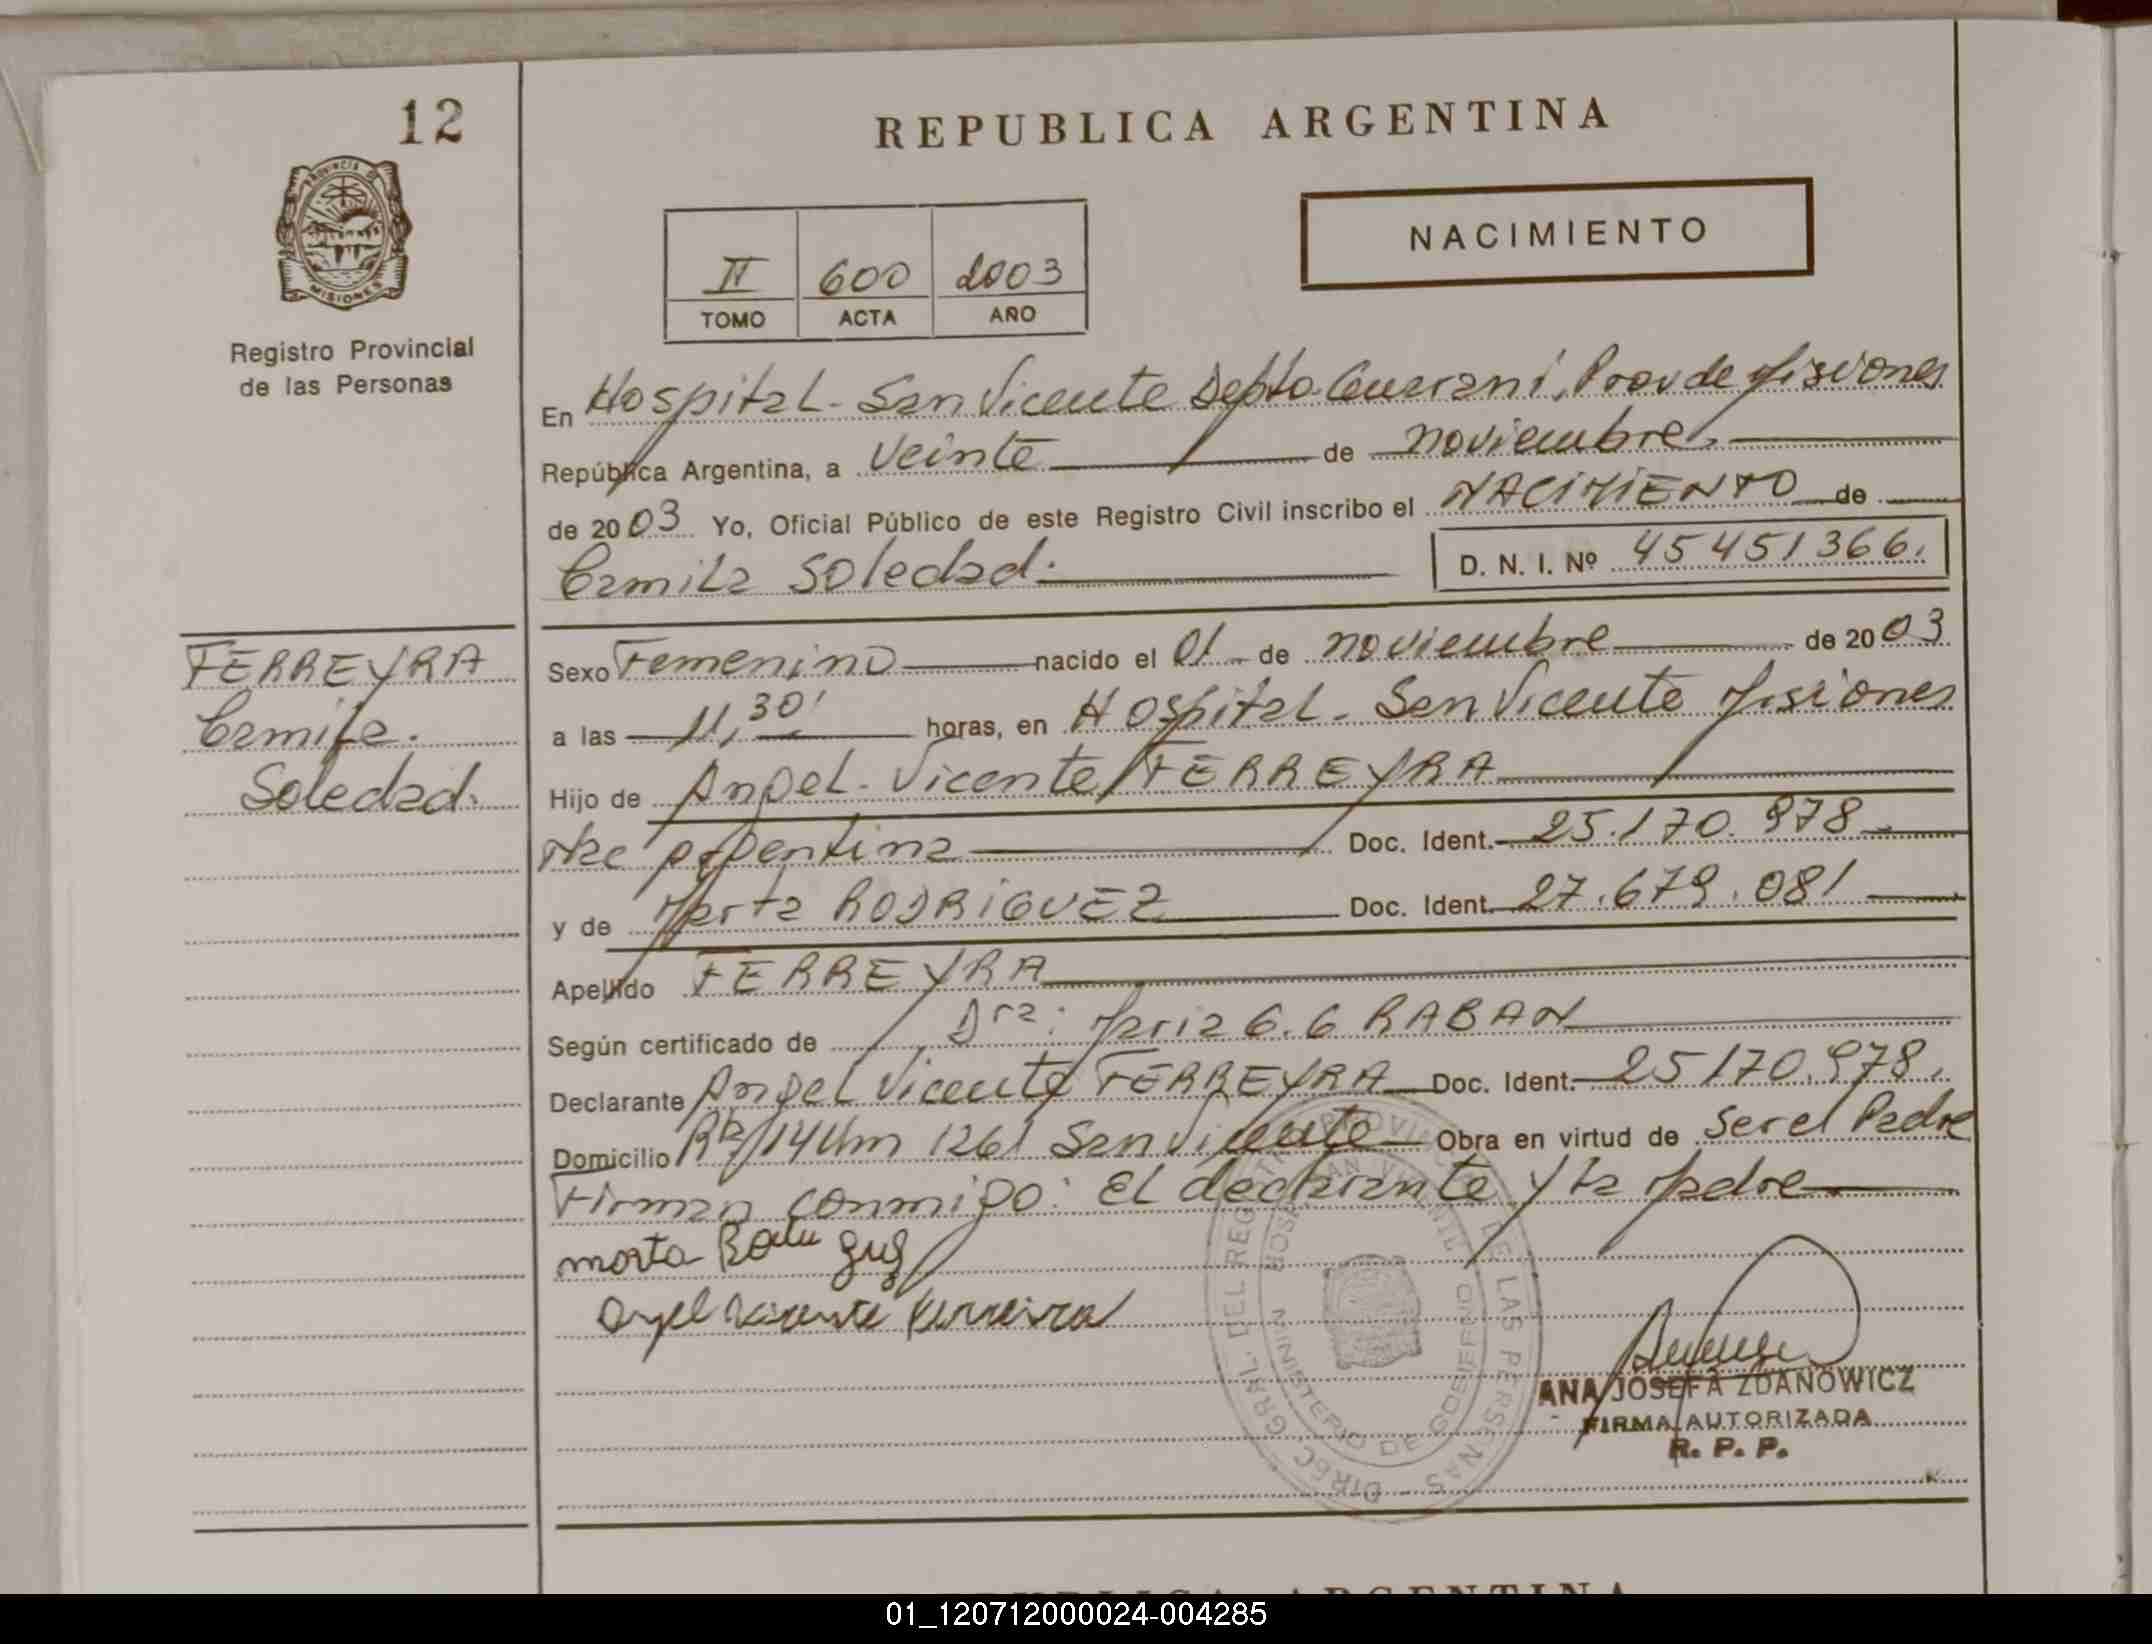 12
PROVINCIA DE
MISIONES
Registro Provincial
de las Personas
REPUBLICA ARGENTINA
NACIMIENTO
II 600 2003
TOMO ACTA AÑO
En Hospital - San Vicente Depto Guarani, Prov de Misiones
República Argentina, a veinte de noviembre
de 2003 Yo, Oficial Público de este Registro Civil inscribo el NACIMIENTO de
Camila Soledad.
D. N. I. Nº 45451366.
FERREYRA
Camila.
Soledad.
Sexo Femenino nacido el 01 de noviembre de 2003
a las 11,30' horas, en Hospital - San Vicente Misiones
Hijo de Angel - Vicente FERREYRA
Nac argentina Doc. Ident. 25.170.978
y de Marta RODRIGUEZ Doc. Ident. 27.679.081
Apellido FERREYRA
Según certificado de Dra: Maria G. G RABAN
Declarante Angel Vicente FERREYRA Doc. Ident. 25170.978.
Domicilio 14 Km 1261 San Vicente Obra en virtud de Ser el Padre
Firman conmigo: El declarante y la Madre
marta
Angel Vicente Ferreira
DIREC. GRAL. DEL REGISTRO PROVINCIAL DE LAS PERSONAS
HOSP. SAN VICENTE
MINISTERIO DE GOBIERNO
ANA JOSEFA ZDANOWICZ
FIRMA AUTORIZADA
R. P. P.
REPUBLICA ARGENTINA
01_120712000024-004285